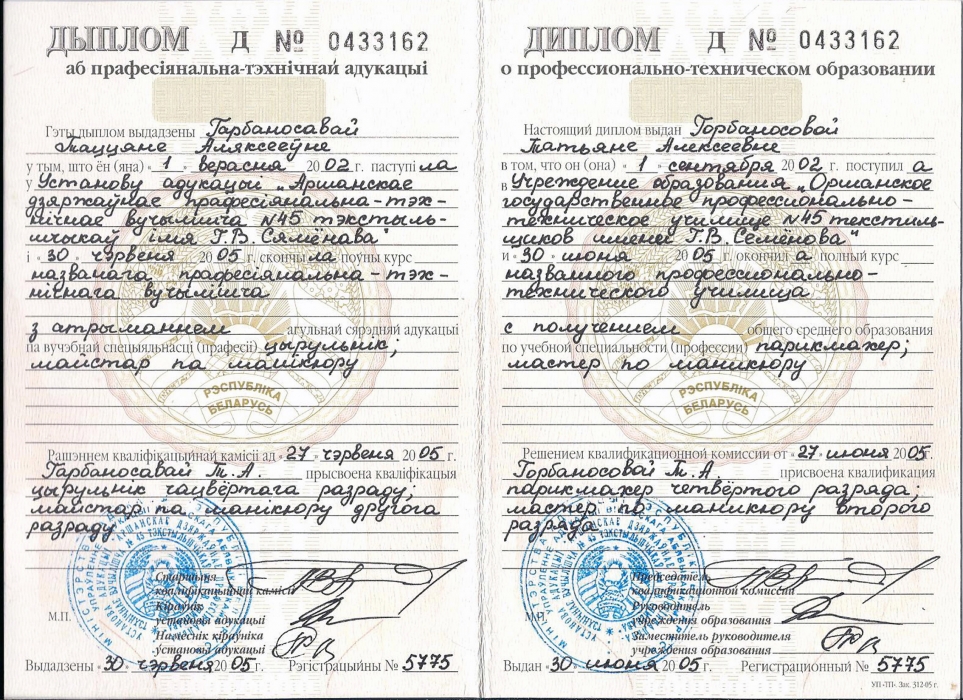 ДЫПЛОМ Д № 0433162
аб прафесіянальна-тэхнічнай адукацыі
Гэты дыплом выдадзены Гарбаносавай
Таццяне Аляксееўне
у тым, што ён (яна) "1" верасня 2002 г. паступіла
у Установу адукацыі „Аршанскае
дзяржаўнае прафесіянальна-тэх-
нічнае вучылішча №45 тэкстыль-
шчыкаў імя Г.В. Сямёнава"
і "30" чэрвеня 2005 г. скончыла поўны курс
названага прафесіянальна-тэх-
нічнага вучылішча
з атрыманнем агульнай сярэдняй адукацыі
па вучэбнай спецыяльнасці (прафесіі) цырульнік;
майстар па манікюру
РЭСПУБЛІКА
БЕЛАРУСЬ
Рашэннем кваліфікацыйнай камісіі ад "27" чэрвеня 2005 г.
Гарбаносавай Т.А. прысвоена кваліфікацыя
цырульнік чацвёртага разраду;
майстар па манікюру другога
разраду
Старшыня
кваліфікацыйнай камісіі
Кіраўнік
установы адукацыі
Намеснік кіраўніка
установы адукацыі
М.П.
Выдадзены "30" чэрвеня 2005 г. Рэгістрацыйны № 5775
ДИПЛОМ Д № 0433162
о профессионально-техническом образовании
Настоящий диплом выдан Горбаносовой
Татьяне Алексеевне
в том, что он (она) "1" сентября 2002 г. поступила
в Учреждение образования „Оршанское
государственное профессионально-
техническое училище №45 текстиль-
щиков имени Г.В. Семёнова"
и "30" июня 2005 г. окончила полный курс
названного профессионально-
технического училища
с получением общего среднего образования
по учебной специальности (профессии) парикмахер;
мастер по маникюру
РЭСПУБЛІКА
БЕЛАРУСЬ
Решением квалификационной комиссии от "27" июня 2005 г.
Горбаносовой Т. А присвоена квалификация
парикмахер четвёртого разряда;
мастер по маникюру второго
разряда
Председатель
квалификационной комиссии
Руководитель
учреждения образования
Заместитель руководителя
учреждения образования
М.П.
Выдан "30" июня 2005 г. Регистрационный № 5775
УП «ТП». Зак. 312-05 г.